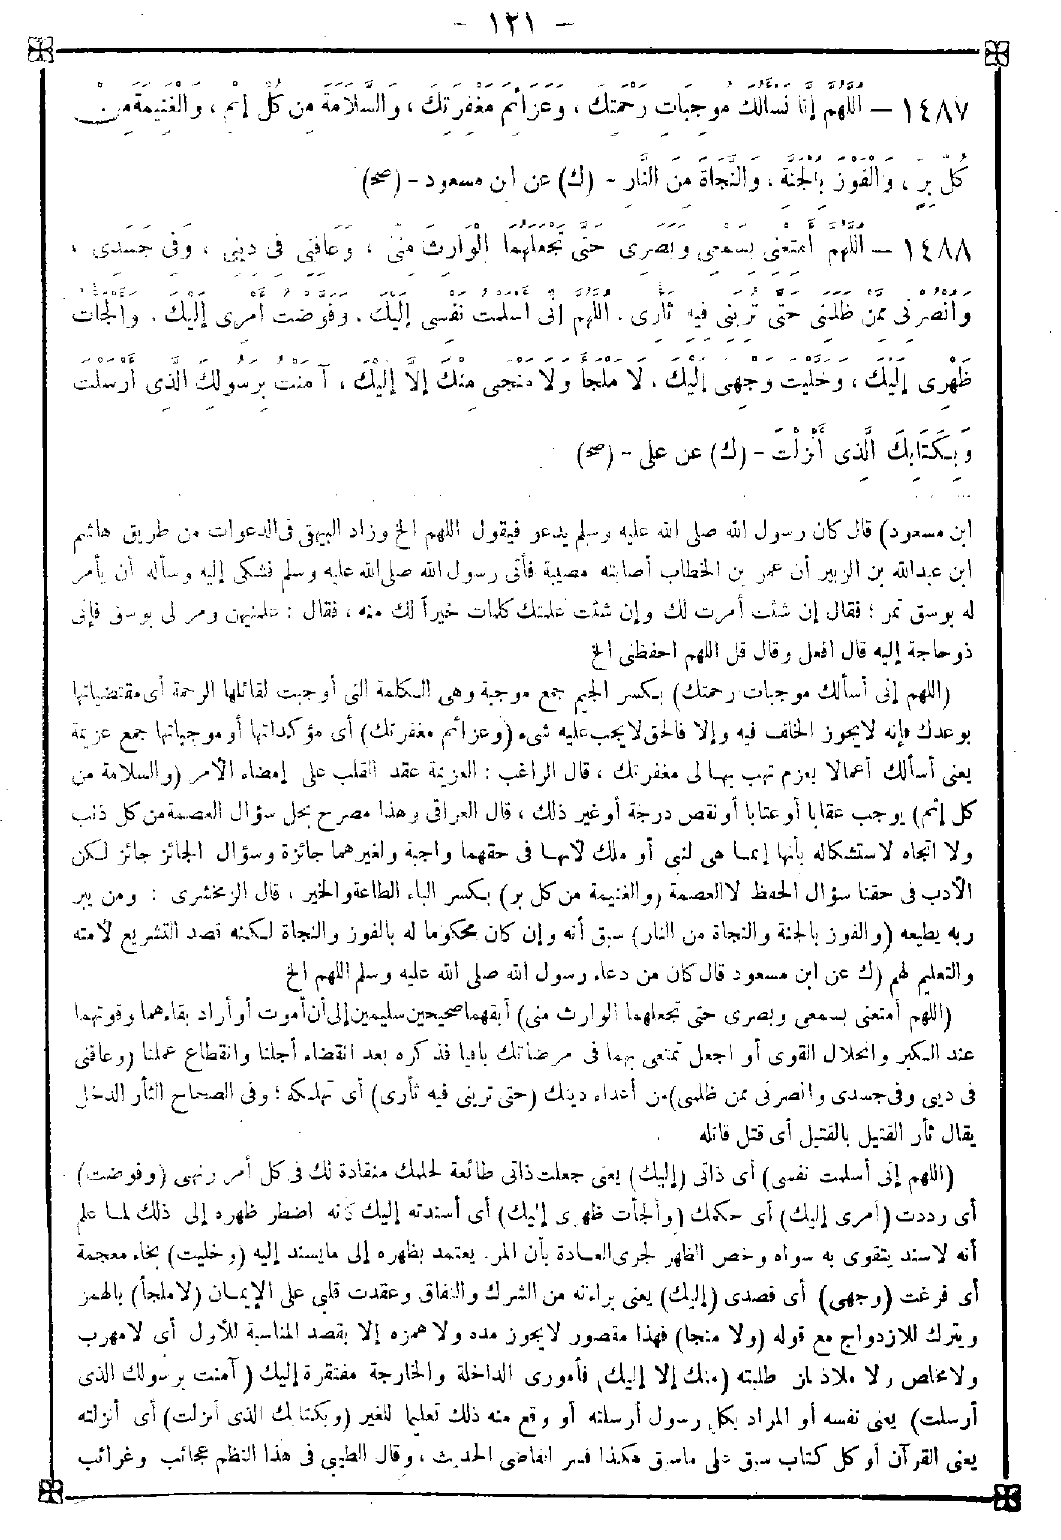 - ١٢١ -
١٤٨٧ – اللَّهُمَّ إِنَّا نَسْأَلُكَ مُوجِبَاتِ رَحْمَتِكَ ، وَعَزَائِمَ مَغْفِرَتِكَ ، وَالسَّلَامَةَ مِنْ كُلِّ إِثْمٍ ، وَالْغَنِيمَةَ مِنْ
كُلِّ بِرٍّ ، وَالْفَوْزَ بِالْجَنَّةِ ، وَالنَّجَاةَ مِنَ النَّارِ - (ك) عن ابن مسعود - (صح)
١٤٨٨ – اللَّهُمَّ أَمْتِعْنِى بِسَمْعِى وَبَصَرِى حَتَّى تَجْعَلَهُمَا الْوَارِثَ مِنِّى ، وَعَافِنِى فِى دِينِى ، وَفِى جَسَدِى ،
وَانْصُرْنِى مِمَّنْ ظَلَمَنِى حَتَّى تُرِيَنِى فِيهِ ثَأْرِى . اللَّهُمَّ إِنِّى أَسْلَمْتُ نَفْسِى إِلَيْكَ . وَفَوَّضْتُ أَمْرِى إِلَيْكَ . وَأَلْجَأْتُ
ظَهْرِى إِلَيْكَ ، وَخَلَّيْتُ وَجْهِى إِلَيْكَ ، لَا مَلْجَأَ وَلَا مَنْجَى مِنْكَ إِلَّا إِلَيْكَ ، آمَنْتُ بِرَسُولِكَ الَّذِى أَرْسَلْتَ
وَبِكِتَابِكَ الَّذِى أَنْزَلْتَ - (ك) عن على - (صح)
ابن مسعود) قال كان رسول الله صلى الله عليه وسلم يدعو فيقول اللهم الخ وزاد البيهقى فى الدعوات من طريق هاشم
ابن عبدالله بن الزبير أن عمر بن الخطاب أصابته مصيبة فأتى رسول الله صلى الله عليه وسلم فشكى إليه وسأله أن يأمر
له بوسق تمر ؛ فقال إن شئت أمرت لك وإن شئت علمتك كلمات خيراً لك منه ، فقال : علمنيهن ومر لى بوسق فإنى
ذو حاجة إليه قال افعل وقال قل اللهم احفظنى الخ
(اللهم إنى أسألك موجبات رحمتك) بكسر الجيم جمع موجبة وهى الكلمة التى أوجبت لقائلها الرحمة أى مقتضياتها
بوعدك فإنه لايجوز الخلف فيه وإلا فالحق لايجب عليه شىء (وعزائم مغفرتك) أى مؤكداتها أو موجباتها جمع عزيمة
يعنى أسألك أعمالا بعزم تهب بها لى مغفرتك ، قال الراغب : العزيمة عقد القلب على إمضاء الأمر (والسلامة من
كل إثم) يوجب عقابا أو عتابا أو نقص درجة أو غير ذلك ، قال العراقى وهذا مصرح بحل سؤال العصمة من كل ذنب
ولا اتجاه لاستشكاله بأنها إنما هى لنبى أو ملك لأنها فى حقهما واجبة ولغيرهما جائزة وسؤال الجائز جائز لكن
الأدب فى حقنا سؤال الحفظ لا العصمة (والغنيمة من كل بر) بكسر الباء الطاعة والخير ، قال الزمخشرى : ومن يبر
ربه يطيعه (والفوز بالجنة والنجاة من النار) سبق أنه وإن كان محكوما له بالفوز والنجاة لكنه قصد التشريع لأمته
والتعليم لهم (ك عن ابن مسعود قال كان من دعاء رسول الله صلى الله عليه وسلم اللهم الخ
(اللهم أمتعنى بسمعى وبصرى حتى تجعلهما الوارث منى) أبقهما صحيحين سليمين إلى أن أموت أو أراد بقاءهما وقوتهما
عند الكبر وانحلال القوى أو اجعل تمتعى بهما فى مرضاتك باقيا فذكره بعد انقضاء أجلنا وانقطاع عملنا (وعافنى
فى دينى وفى جسدى وانصرنى ممن ظلمنى) من أعداء دينك (حتى ترينى فيه ثأرى) أى تهلكه ؛ وفى الصحاح الثأر الدخل
يقال ثأر القتيل بالقتيل أى قتل قاتله
(اللهم إنى أسلمت نفسى) أى ذاتى (إليك) يعنى جعلت ذاتى طائعة لحكمك منقادة لك فى كل أمر ونهى (وفوضت)
أى رددت (أمرى إليك) أى حكمك (وألجأت ظهرى إليك) أى أسندته إليك كأنه اضطر ظهره إلى ذلك لما علم
أنه لا سند يتقوى به سواه وخص الظهر لجرى العادة بأن المرء يعتمد بظهره إلى ما يسند إليه (وخليت) بخاء معجمة
أى فرغت (وجهى) أى قصدى (إليك) يعنى براءته من الشرك والنفاق وعقدت قلبى على الإيمان (لا ملجأ) بالهمز
ويترك للازدواج مع قوله (ولا منجا) فهذا مقصور لايجوز مده ولا همزه إلا بقصد المناسبة للأول أى لامهرب
ولا مخلص ولا ملاذ لمن طلبته (منك إلا إليك) فأمورى الداخلة والخارجة مفتقرة إليك (آمنت برسولك الذى
أرسلت) يعنى نفسه أو المراد بكل رسول أرسلته أو وقع منه ذلك تعليما للغير (وبكتابك الذى أنزلت) أى أنزلته
يعنى القرآن أو كل كتاب سبق على ماسبق هكذا فسر القاضى الحديث ، وقال الطيبى فى هذا النظم عجائب وغرائب